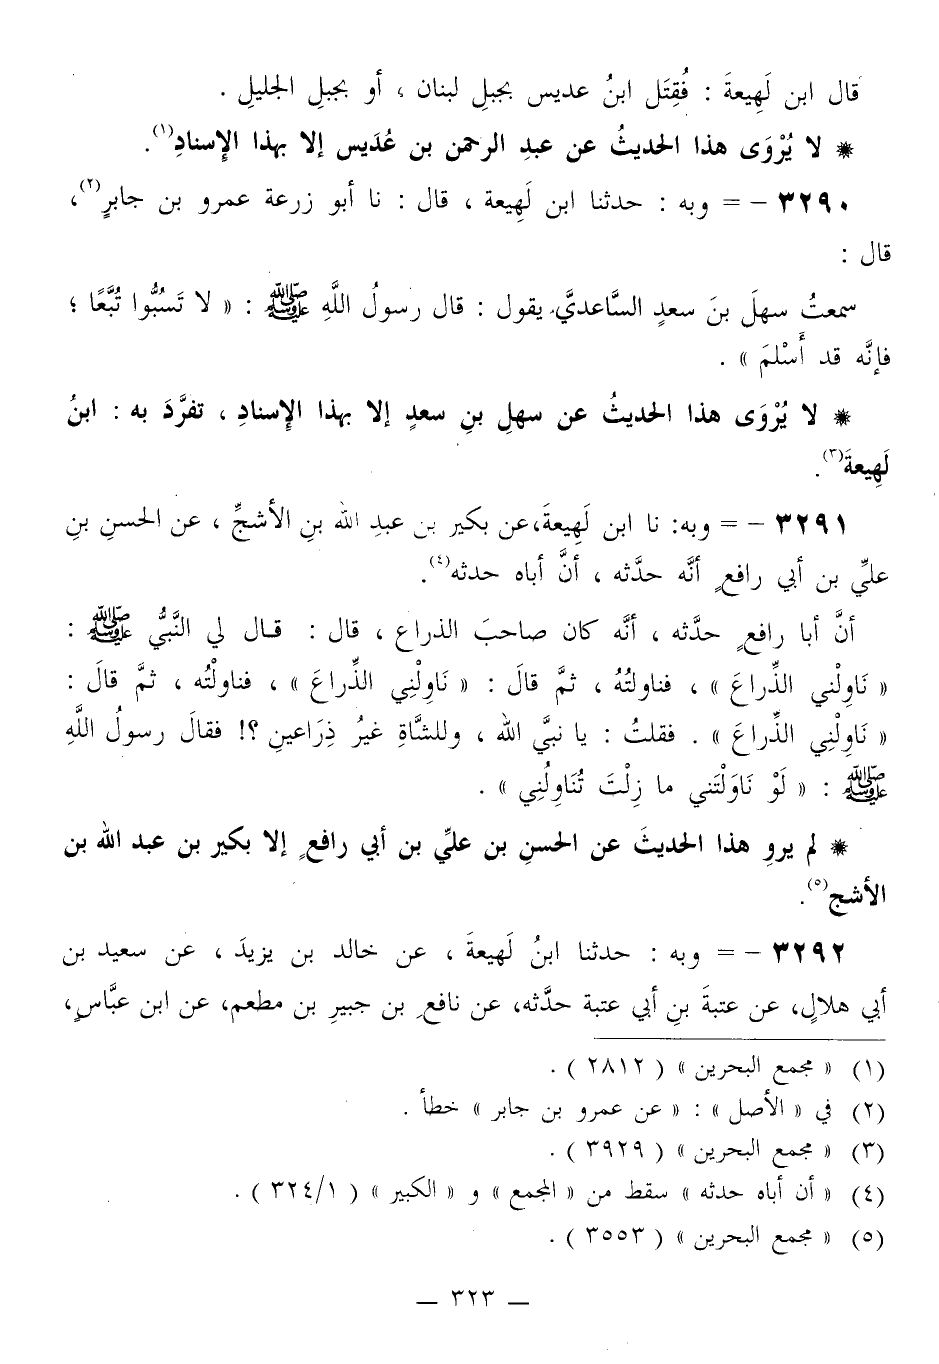 قال ابن لَهِيعةَ : فُقِتَل ابنُ عديس بجبلِ لبنان ، أو بجبلِ الجليلِ .
* لا يُرْوَى هذا الحديثُ عن عبدِ الرحمن بن عُدَيس إلا بهذا الإِسنادِ(١).
٣٢٩٠ – = وبه : حدثنا ابن لَهِيعة ، قال : نا أبو زرعة عمرو بن جابرٍ(٢)،
قال :
سمعتُ سهلَ بنَ سعدٍ السَّاعديَّ يقول : قال رسولُ اللَّهِ ﷺ : « لا تَسُبُّوا تُبَّعًا ؛
فإنَّه قد أَسْلمَ » .
* لا يُرْوَى هذا الحديثُ عن سهلِ بنِ سعدٍ إلا بهذا الإِسنادِ ، تفرَّدَ به : ابنُ
لَهِيعةَ(٣).
٣٢٩١ – = وبه: نا ابن لَهِيعةَ،عن بكير بن عبدِ الله بنِ الأشجِّ ، عن الحسنِ بنِ
عليِّ بن أبي رافعٍ أنَّه حدَّثه ، أنَّ أباه حدثه(٤).
أنَّ أبا رافعٍ حدَّثه ، أنَّه كان صاحبَ الذراع ، قال : قال لي النَّبيُّ ﷺ :
« نَاوِلْني الذِّراعَ » ، فناولتُهُ ، ثمَّ قالَ : « نَاوِلْنِي الذِّراعَ » ، فناولْتُه ، ثمَّ قالَ :
« نَاوِلْنِي الذِّراعَ » . فقلتُ : يا نبيَّ الله ، وللشَّاةِ غيرُ ذِرَاعينِ ؟! فقالَ رسولُ اللَّهِ
ﷺ : « لَوْ نَاوَلْتَني ما زِلْتَ تُنَاوِلُنِي » .
* لم يروِ هذا الحديثَ عن الحسنِ بن عليِّ بن أبي رافعٍ إلا بكير بن عبد الله بن
الأشج(٥).
٣٢٩٢ – = وبه : حدثنا ابنُ لَهِيعةَ ، عن خالد بن يزيدَ ، عن سعيد بن
أبي هلالٍ، عن عتبةَ بنِ أبي عتبة حدَّثه، عن نافعِ بن جبيرِ بن مطعم، عن ابن عبَّاسٍ،
(١) « مجمع البحرين » ( ٢٨١٢ ) .
(٢) في « الأصل » : « عن عمرو بن جابر » خطأ .
(٣) « مجمع البحرين » ( ٣٩٢٩ ) .
(٤) « أن أباه حدثه » سقط من « المجمع » و « الكبير » ( ٣٢٤/١ ) .
(٥) « مجمع البحرين » ( ٣٥٥٣ ) .
– ٣٢٣ –